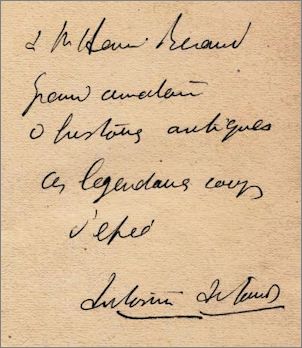 à Mr Henri Béraud
grand amateur
d'histoires antiques
ces légendaires coups
d'épée
Antonin Artaud